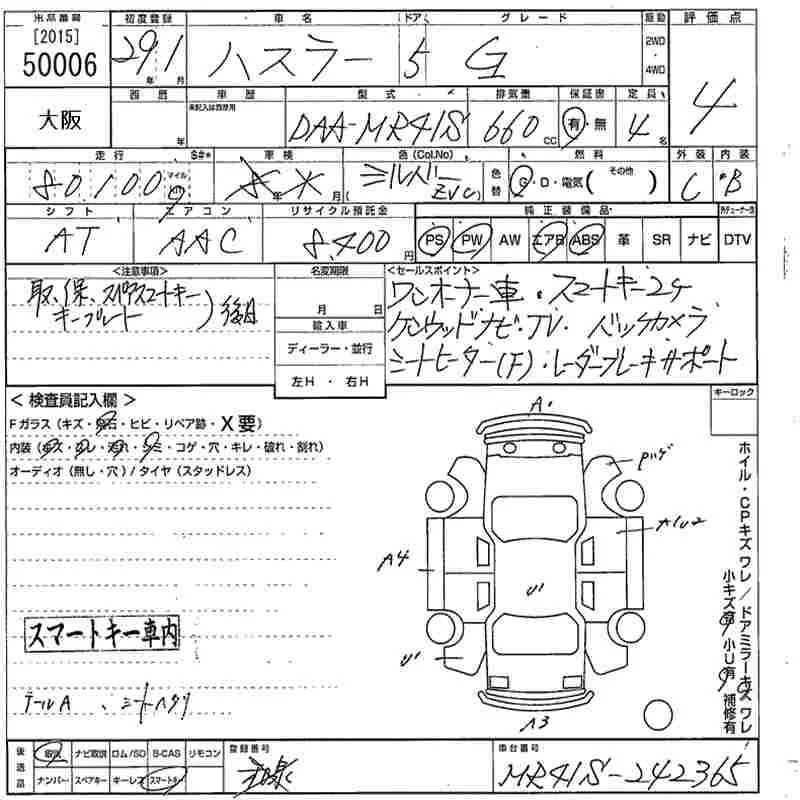 出品番号 初度登録 車名 ドア グレード 駆動 評価点
[2015]
50006 29年 1月 ハスラー 5 G 2WD・4WD 4
西暦 車歴 型式 排気量 保証書 定員
未記入は自家用
大阪 年 DAA-MR41S 660cc 有・無 4名
走行 $#* 車検 色(Col.No) 燃料 外装 内装
80,100 マイル km 年 月( シルバー ZVC) 色替 G・D・電気( その他 ) C B
シフト エアコン リサイクル預託金 純正装備品
AT AAC 8,400円 PS PW AW エアB ABS 革 SR ナビ DTV
<注意事項> 名変期限 <セールスポイント>
取、保、スペアスマートキー
キープレート ) 後日
月 日
輸入車
ディーラー・並行
左H・右H
ワンオーナー車・スマートキー2ヶ
ケンウッドナビ・TV・バックカメラ
シートヒーター(F)・レーダーブレーキサポート
<検査員記入欄> キーロック
Fガラス(キズ・飛石・ヒビ・リペア跡・X要)
内装(キズ・スレ・汚れ・シミ・コゲ・穴・キレ・破れ・割れ)
オーディオ(無し・穴)/タイヤ(スタッドレス)
A1
Pハゲ
A1U2
A4
U1
U1
A3
ホイル・CPキズ ワレ/ドアミラーキズ ワレ
小キズ有/小U有 補修有
スマートキー車内
テールA、シートヘタリ
後送品 取説 ナビ取説 ロム/SD B-CAS リモコン 登録番号 車台番号
ナンバー スペアキー キーレス スマートキー MR41S-242365